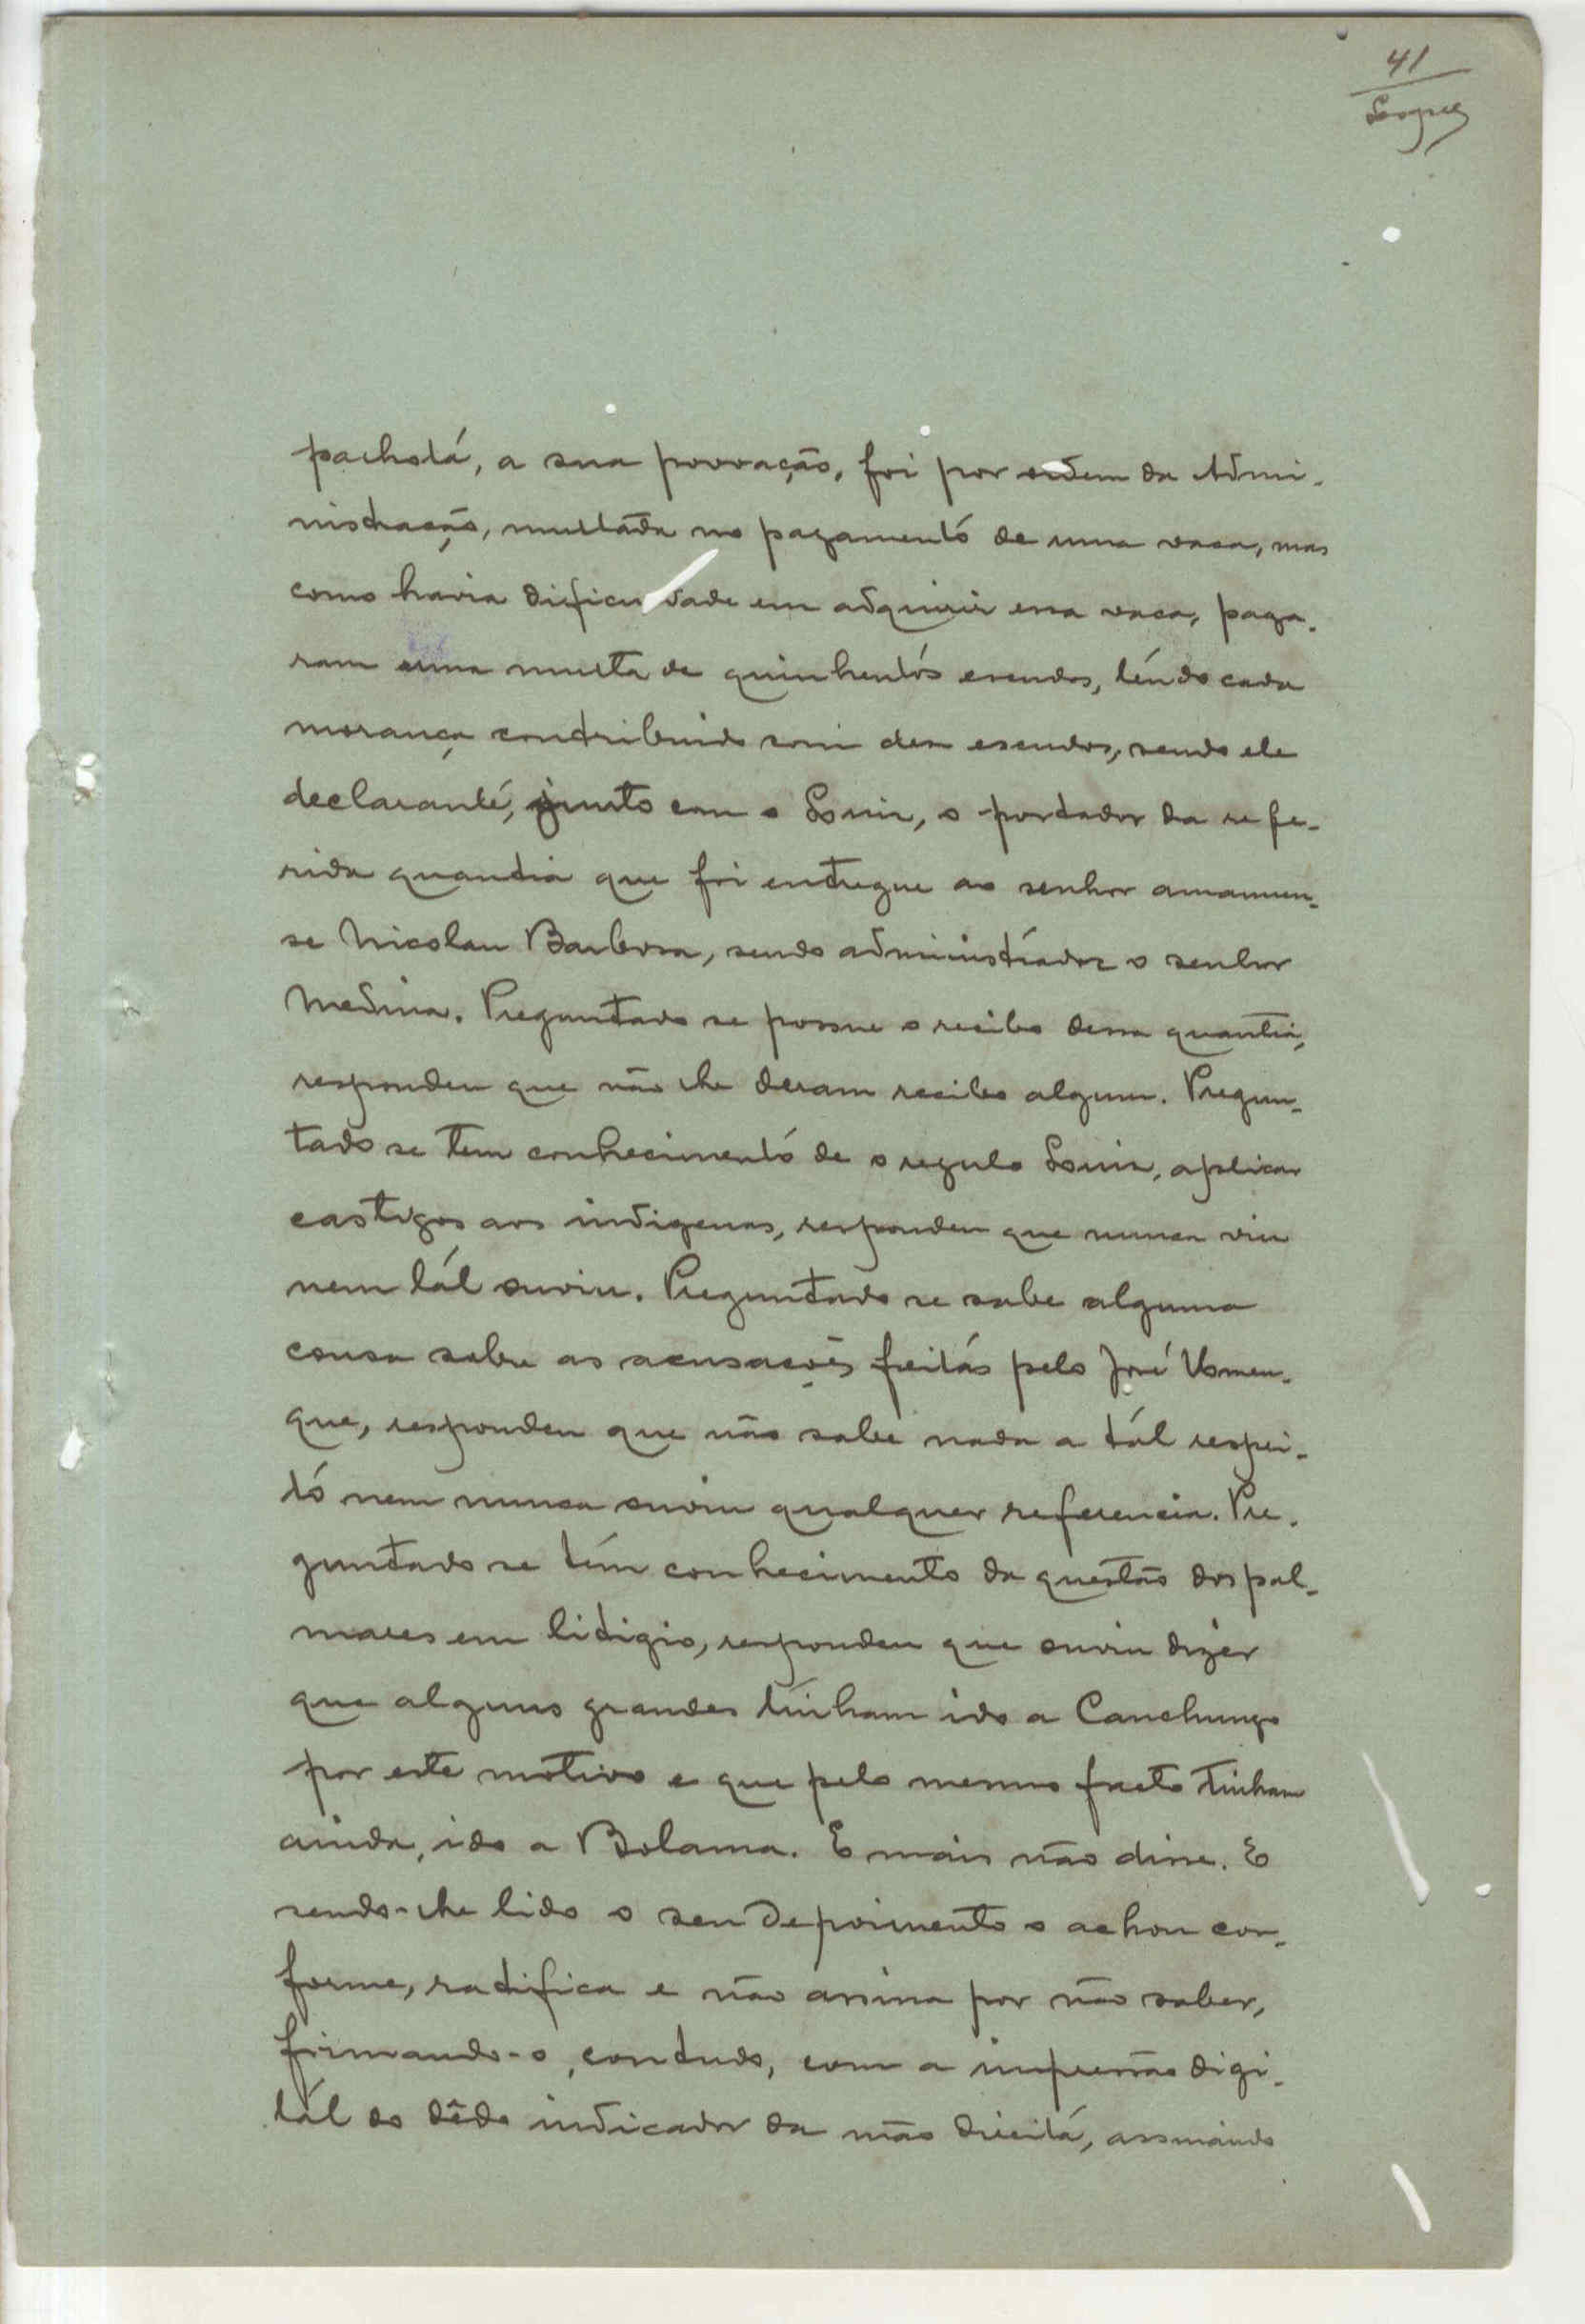 41
pacholá, a sua povoação, foi por ordem da Admi-
nistração, multáda no pagamentó de uma vaca, mas
como havia dificuldade em adquirir essa vaca, paga-
ram uma multa de quinhentós escudos, téndo cada
morança contribuido com dez escudos, sendo ele
declaranté, junto com o Louis, o portador da refe-
rida quantia que foi entregue ao senhor amanuen-
se Nicolau Barbosa, sendo administrador o senhor
Medina. Preguntado se possue o recibo dessa quantia,
respondeu que não lhe deram recibo algum. Pregun-
tado se tem conhecimentó de o regulo Louis, aplicar
castigos aos indigenas, respondeu que nunca viu
nem tál ouviu. Preguntado se sabe alguma
cousa sobre as acusações feitás pelo José Umen-
que, respondeu que não sabe nada a tál respei-
tó nem nunca ouviu qualquer referencia. Pre-
guntado se tém conhecimento da questão dos pal-
mares em litigio, respondeu que ouviu dizer
que alguns grandes tinham ido a Canchungo
por este motivo e que pelo mesmo facto tinham
ainda, ido a Bolama. E mais não disse. E
sendo-lhe lido o seu depoimento o achou con-
forme, ratifica e não assina por não saber,
firmando-o, contudo, com a impressão digi-
tál do dêdo indicador da mão direitá, assinando